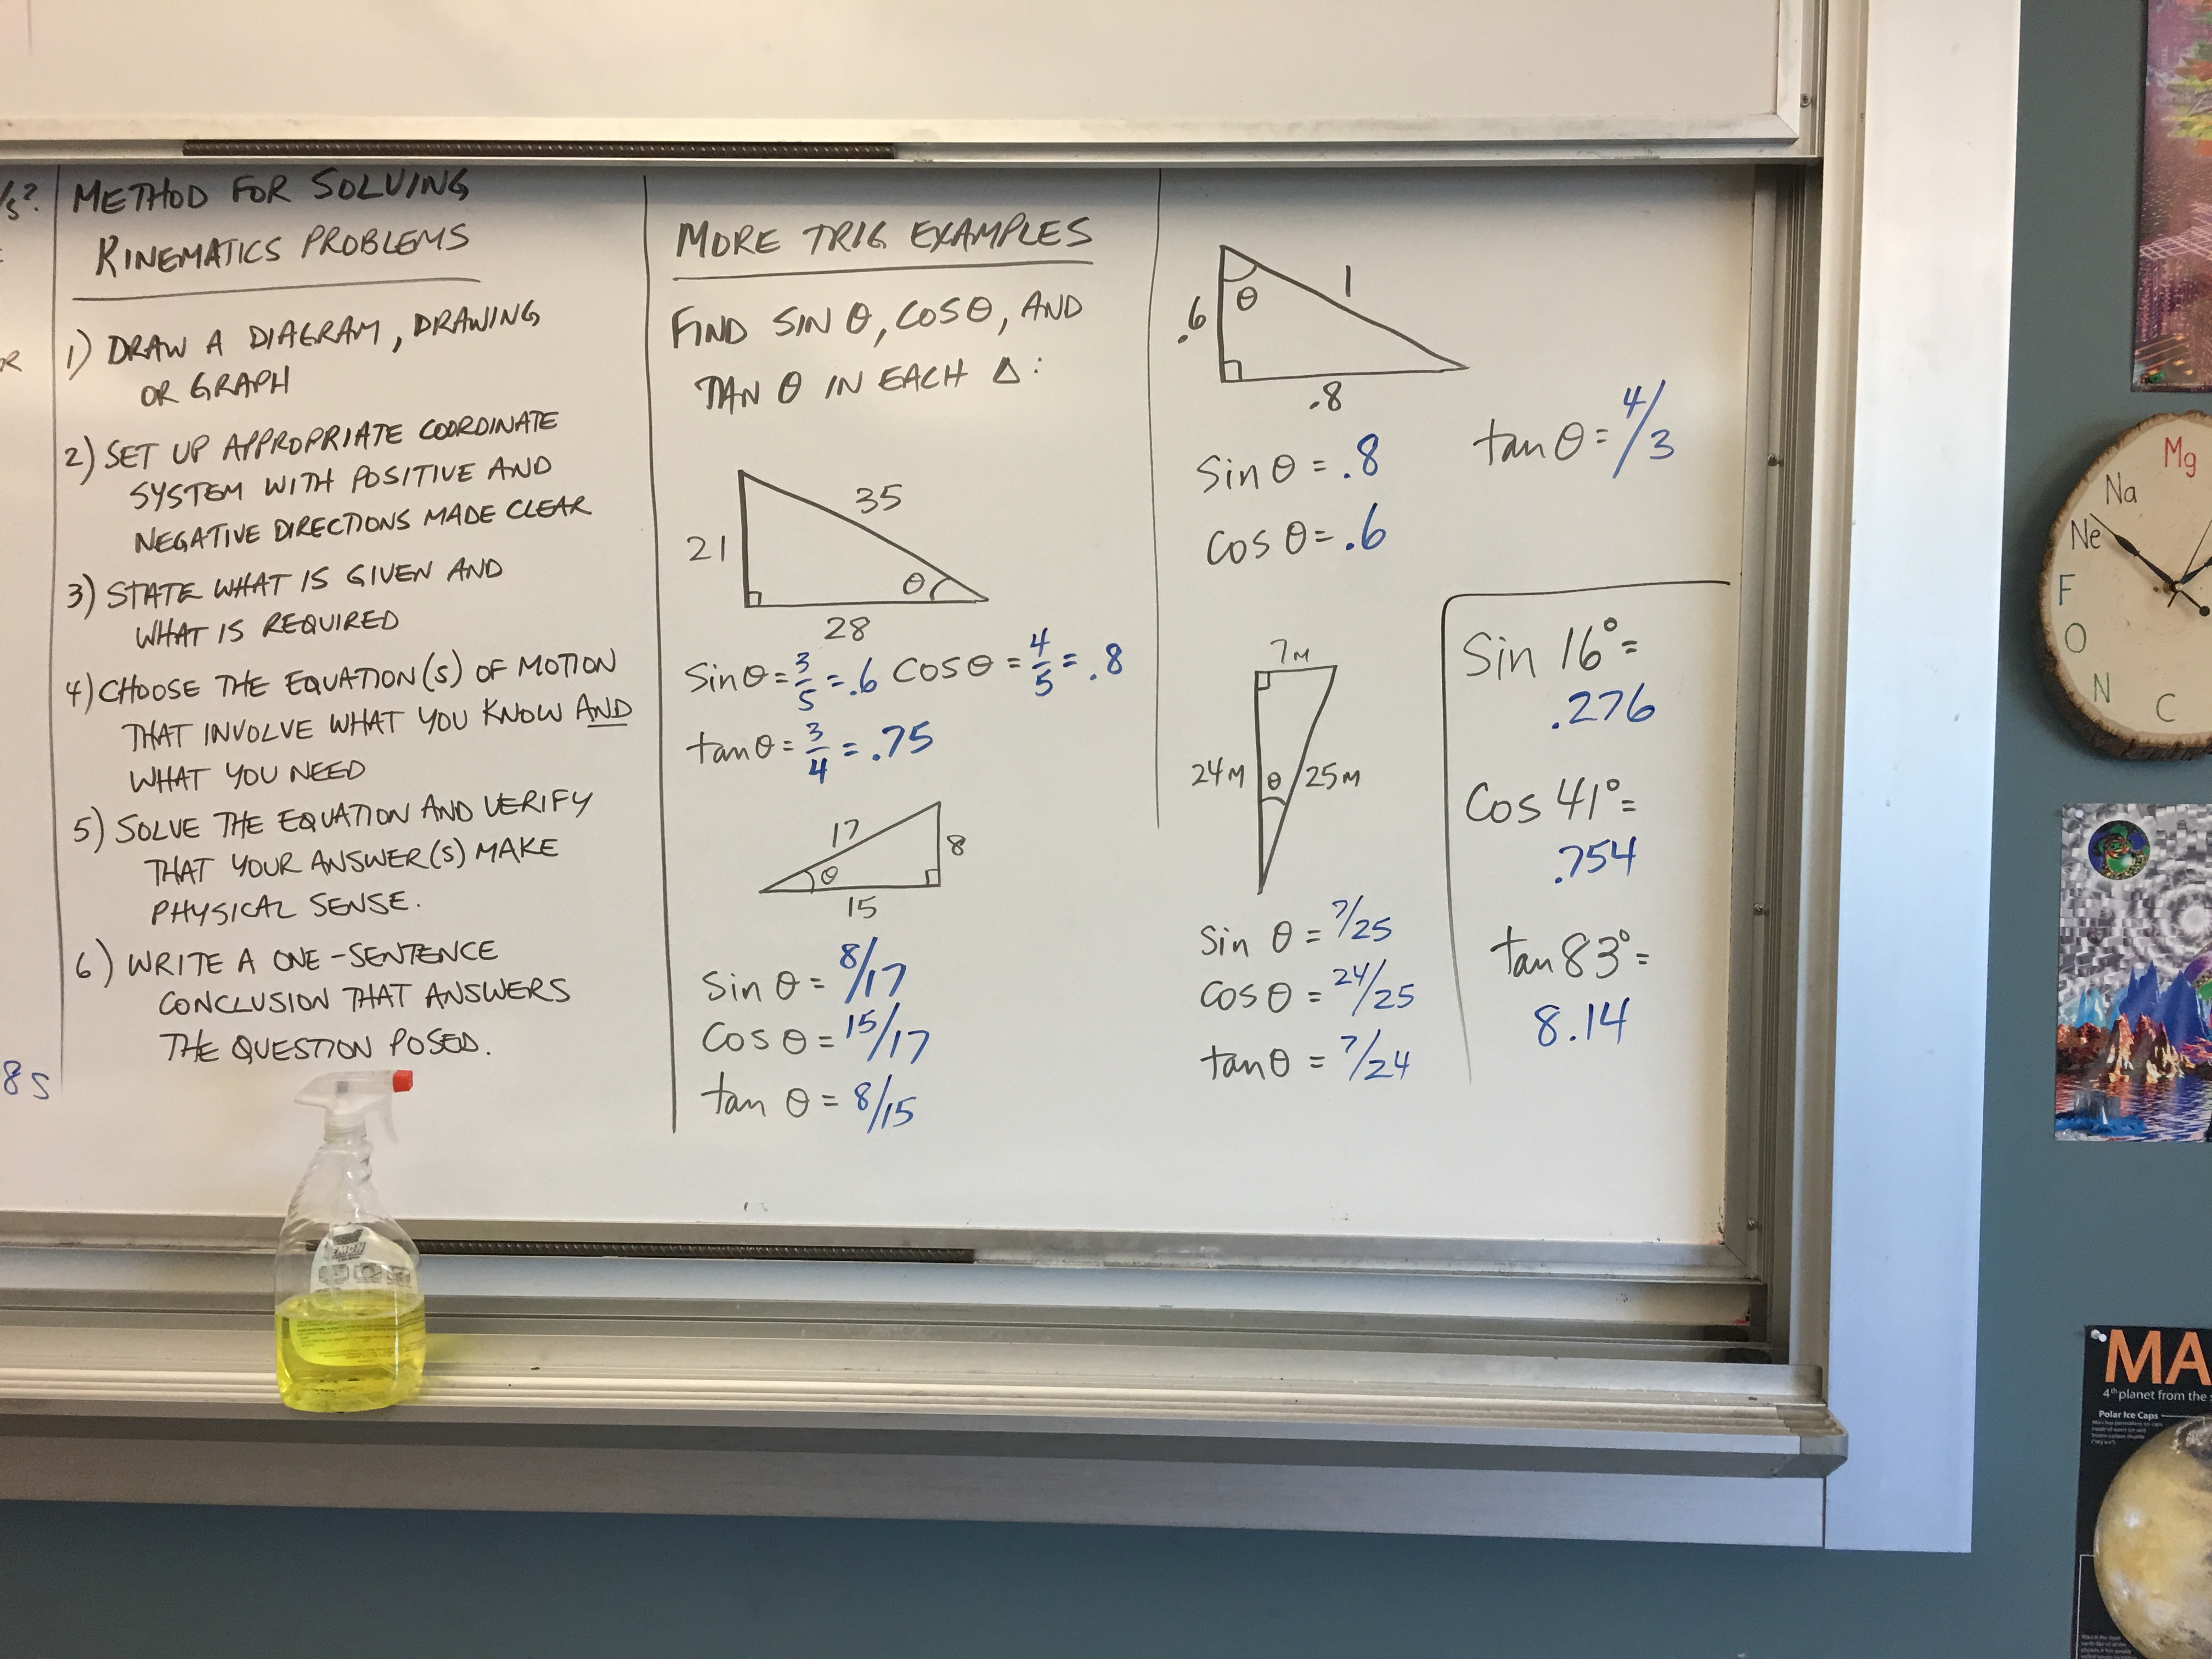 /s?
OR
8 S
METHOD FOR SOLVING
KINEMATICS PROBLEMS
1) DRAW A DIAGRAM, DRAWING
OR GRAPH
2) SET UP APPROPRIATE COORDINATE
SYSTEM WITH POSITIVE AND
NEGATIVE DIRECTIONS MADE CLEAR
3) STATE WHAT IS GIVEN AND
WHAT IS REQUIRED
4) CHOOSE THE EQUATION(S) OF MOTION
THAT INVOLVE WHAT YOU KNOW AND
WHAT YOU NEED
5) SOLVE THE EQUATION AND VERIFY
THAT YOUR ANSWER(S) MAKE
PHYSICAL SENSE.
6) WRITE A ONE-SENTENCE
CONCLUSION THAT ANSWERS
THE QUESTION POSED.
MORE TRIG EXAMPLES
FIND SIN θ, COS θ, AND
TAN θ IN EACH Δ:
35
21
θ
28
sin θ = 3/5 = .6 cos θ = 4/5 = .8
tan θ = 3/4 = .75
17
8
θ
15
sin θ = 8/17
cos θ = 15/17
tan θ = 8/15
1
θ
.6
.8
sin θ = .8
cos θ = .6
tan θ = 4/3
7M
24M θ 25M
sin θ = 7/25
cos θ = 24/25
tan θ = 7/24
sin 16° =
.276
cos 41° =
.754
tan 83° =
8.14
Mg
Na
Ne
F
O
N
C
MA
4th planet from the
Polar Ice Caps